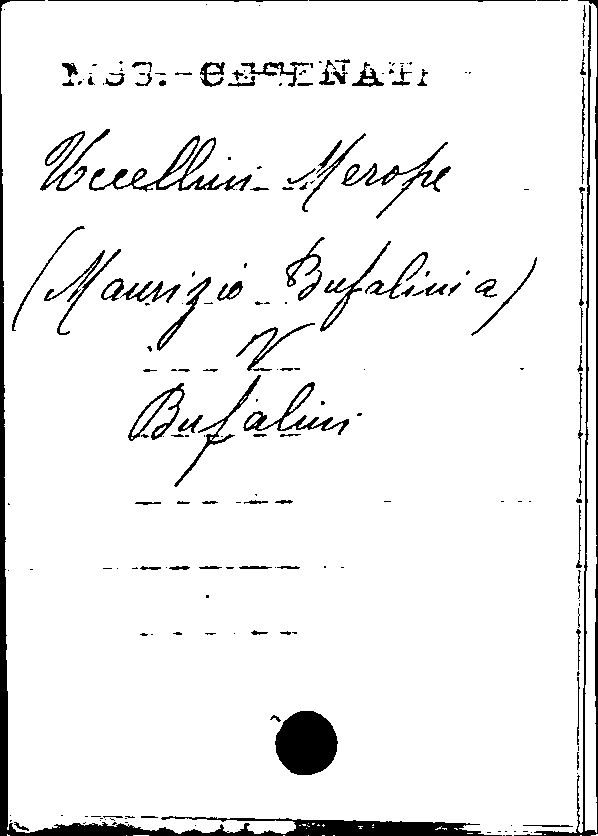 MSS. - CESENATI
Uccellini Merope
(Maurizio Bufalini a)
V
Bufalini